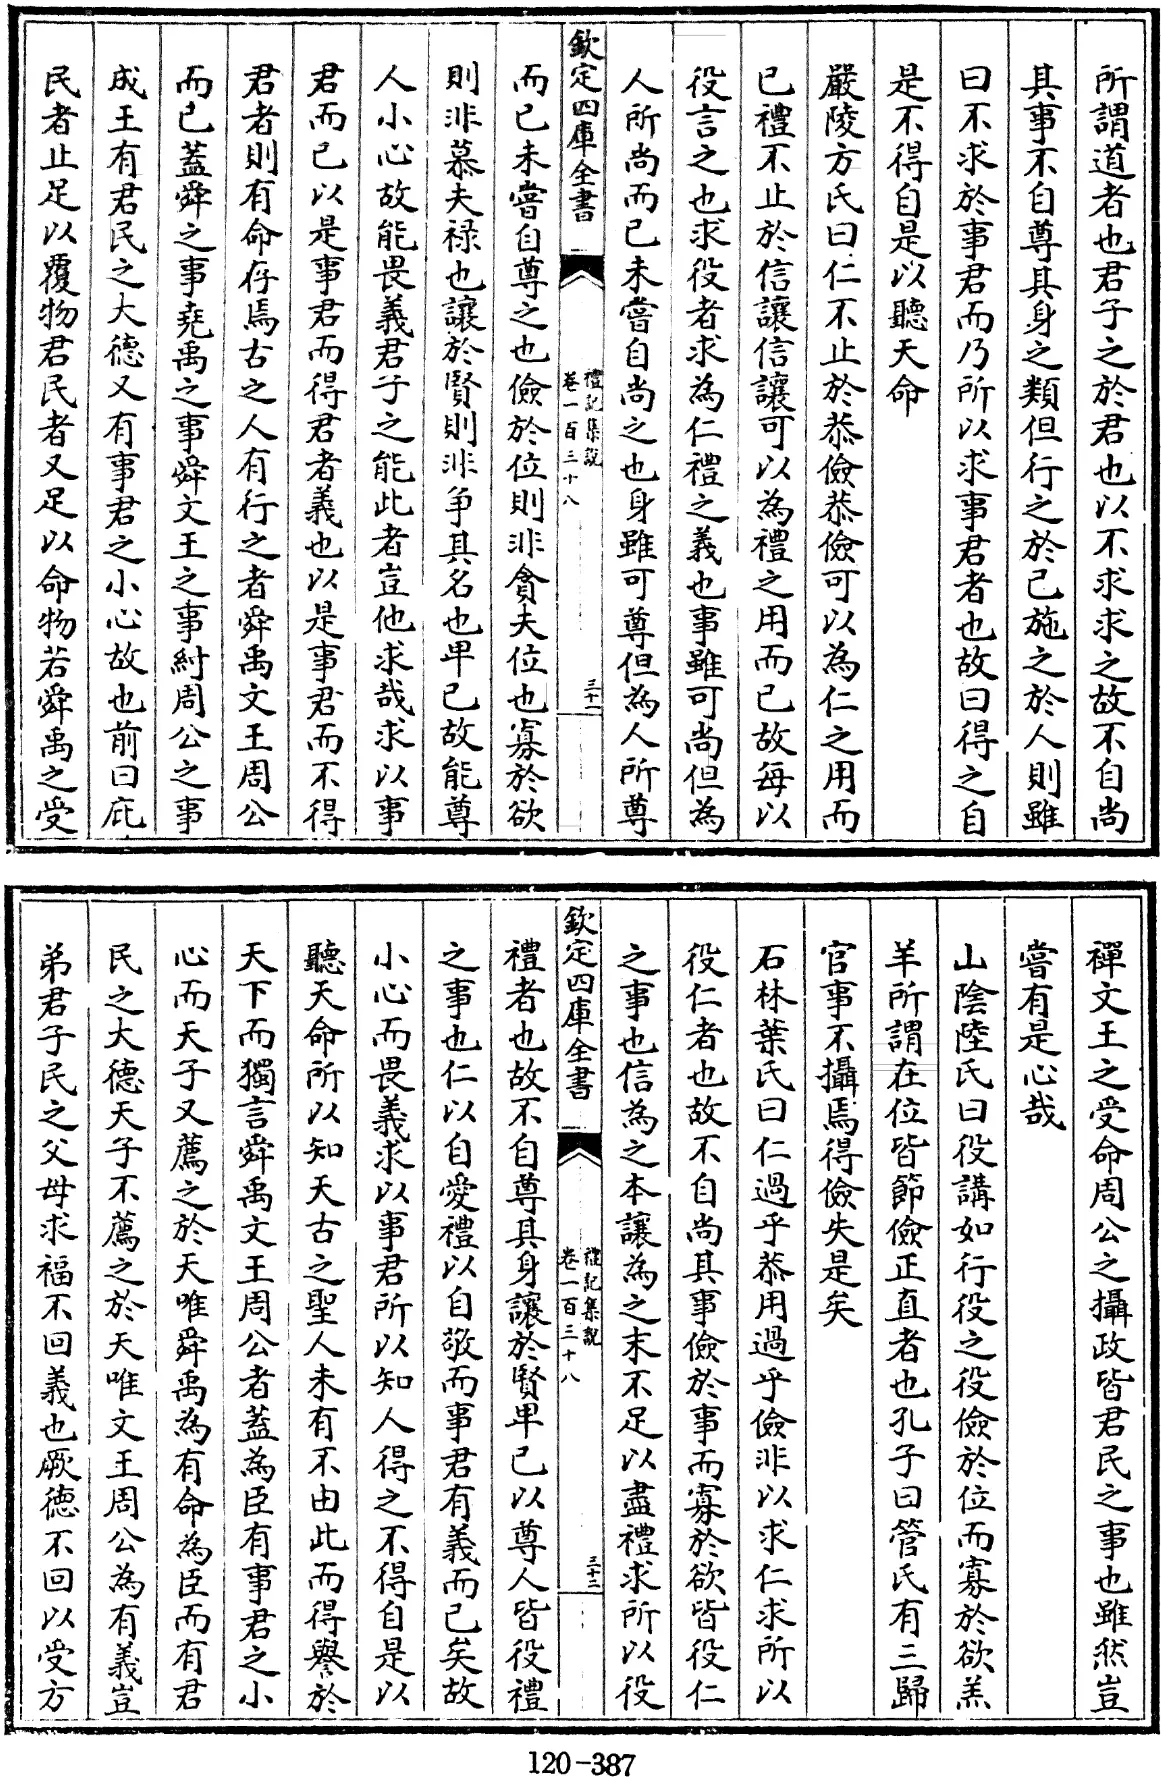 所謂道者也君子之於君也以不求求之故不自尚
其事不自尊其身之類但行之於己施之於人則雖
曰不求於事君而乃所以求事君者也故曰得之自
是不得自是以聽天命
嚴陵方氏曰仁不止於恭儉恭儉可以為仁之用而
已禮不止於信讓信讓可以為禮之用而已故每以
役言之也求役者求為仁禮之義也事雖可尚但為
人所尚而已未嘗自尚之也身雖可尊但為人所尊
欽定四庫全書
禮記集說
卷一百三十八
三十一
而已未嘗自尊之也儉於位則非貪夫位也寡於欲
則非慕夫祿也讓於賢則非爭其名也卑已故能尊
人小心故能畏義君子之能此者豈他求哉求以事
君而已以是事君而得君者義也以是事君而不得
君者則有命存焉古之人有行之者舜禹文王周公
而已蓋舜之事堯禹之事舜文王之事紂周公之事
成王有君民之大德又有事君之小心故也前曰庇
民者止足以覆物君民者又足以命物若舜禹之受
禪文王之受命周公之攝政皆君民之事也雖然豈
嘗有是心哉
山陰陸氏曰役講如行役之役儉於位而寡於欲羔
羊所謂在位皆節儉正直者也孔子曰管氏有三歸
官事不攝焉得儉失是矣
石林葉氏曰仁過乎恭用過乎儉非以求仁求所以
役仁者也故不自尚其事儉於事而寡於欲皆役仁
之事也信為之本讓為之末不足以盡禮求所以役
欽定四庫全書
禮記集說
卷一百三十八
三十二
禮者也故不自尊其身讓於賢卑己以尊人皆役禮
之事也仁以自愛禮以自敬而事君有義而已矣故
小心而畏義求以事君所以知人得之不得自是以
聽天命所以知天古之聖人未有不由此而得譽於
天下而獨言舜禹文王周公者蓋為臣有事君之小
心而天子又薦之於天唯舜禹為有命為臣而有君
民之大德天子不薦之於天唯文王周公為有義豈
弟君子民之父母求福不回義也厥德不回以受方
120-387